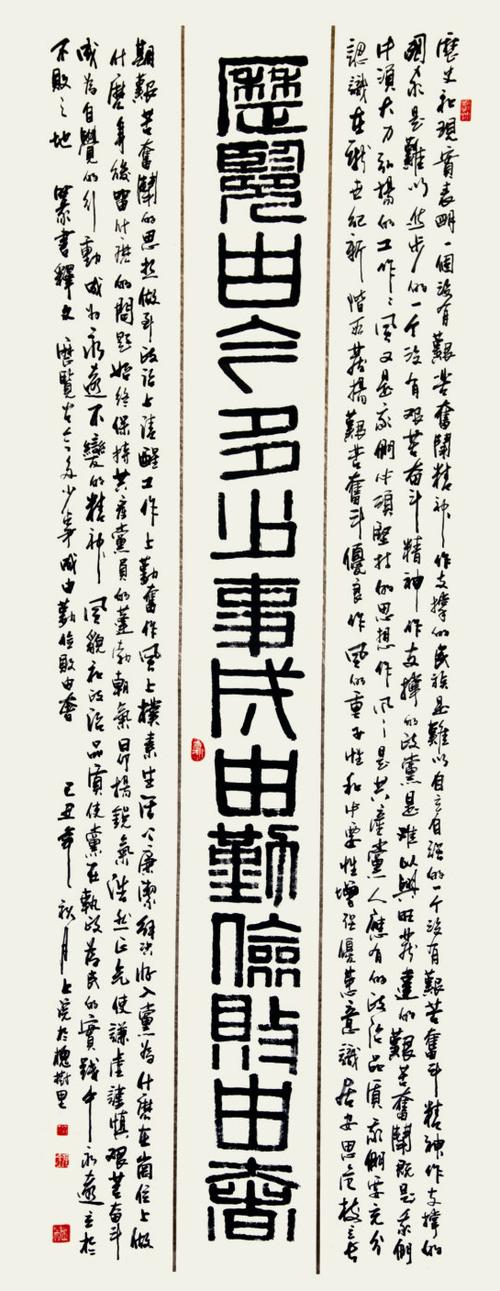 歷史和現實表明一個沒有艱苦奮鬥精神作支撐的民族是難以自立自强的一个沒有艱苦奮斗精神作支撐的
國家是難以進步的一个沒有艰苦奋斗精神作支撑的政黨是难以興旺發達的艱苦奮鬪既是我們
必須大力弘揚的工作作風又是我們必須堅持的思想作風是共產黨人應有的政治品質我們要充分
認識在新世紀新階段發揚艱苦奮斗優良作風的重要性和必要性增强優患意識居安思危樹立長
歷覽古今多少事成由勤儉敗由奢
期艱苦奮鬪的思想做到政治上清醒工作上勤奮作風上樸素生活上廉潔解決好入黨為什麽在崗位上做
什麽身後留什麽的問題始終保持共產黨員的蓬勃朝氣昂揚銳氣浩然正气使謙虛謹慎艰苦奋斗
成為自覺的行動成為永遠不變的精神風貌和政治品質使黨在執政為民的實踐中永遠立於
不敗之地 篆書釋文 歷覽古今多少事成由勤儉敗由奢 己丑年秋月上浣於槐樹里